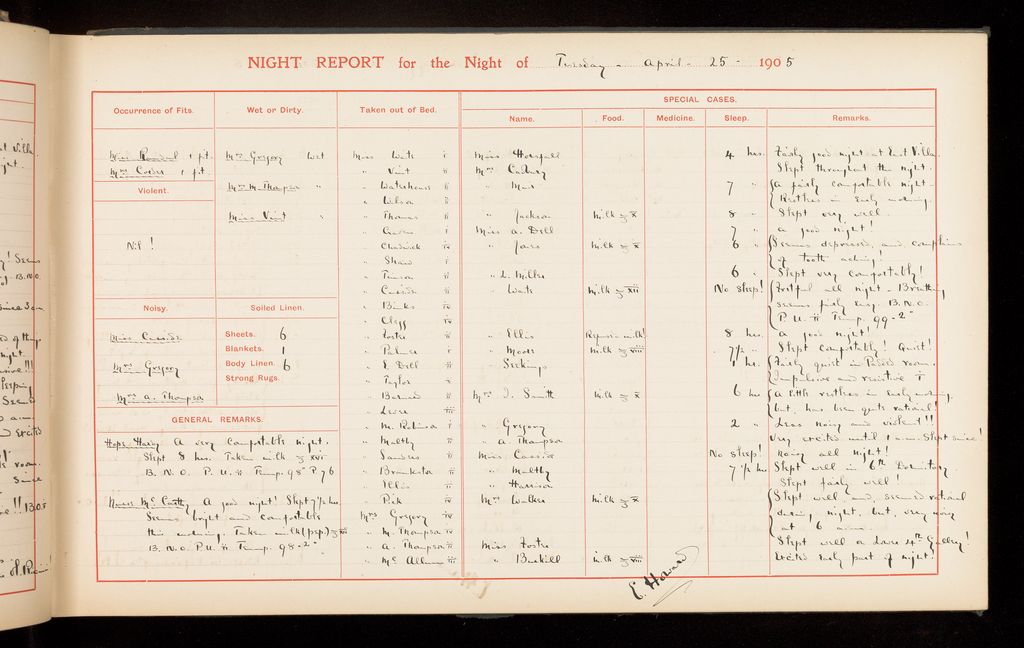 NIGHT REPORT for the Night of Tuesday - April - 25 - 1905
Occurrence of Fits.
1 fit.
Mrs 1 fit.
Violent.
Nil!
Noisy.
Miss Casside
Mrs Gregory
Mrs A. Thompson
Wet or Dirty.
Mrs Gregory Wet
Mrs M. Thompson "
Miss Vint "
Soiled Linen.
Sheets. 6
Blankets. 1
Body Linen. 6
Strong Rugs.
GENERAL REMARKS.
A very comfortable night.
Slept 8 hrs. Taken milk ℥ xvi
B. N. O. P. U. ii Temp. 98° P 76
Nurse McCarthy A good night! Slept 7½ hrs.
Seems bright and comfortable
this morning. Taken milk (pep)
B. N. O. P. U. ii Temp. 98.2°
Taken out of Bed.
Miss Waits i
" Vint ii
" Waterhouse ii
" Wilson ii
" Thomas ii
" i
" Chadwick iv
" Shaw i
" ii
" Casside ii
" Binks iv
" Clegg iv
" Foster ii
" Palmer i
" E. Dell ii
" Taylor ii
" Barnard ii
" iii
" M. Robinson i
" Maltby ii
" Sanders ii
" ii
" Ellis ii
" iv
Mrs Gregory iv
" M. Thompson iv
" A. Thompson ii
" McAllum iii
SPECIAL CASES.
Name. Food. Medicine. Sleep. Remarks.
Miss Horsfall 4 hrs. Fairly good night at East Villa.
Mrs Cadbury Slept throughout the night.
" 7 " A fairly comfortable night -
Restless in Early morning
" Jackson Milk ℥ x 8 " Slept very well.
Miss A. Dell 7 " A good night!
" Jones Milk ℥ x 6 " Seems depressed, and complains
of tooth aching!
" L. Miller 6 " Slept very comfortably!
" Waits Milk ℥ xii No sleep! Restful all night - Breathing
seems fairly easy. B. N. O.
P. U. ii Temp. 99.2°
" Ellis Refused milk! 8 hrs. A good night!
" Moore Milk ℥ viii 7½ " Slept comfortably! Quiet!
" 1 hr. Fairly quiet in Padded room.
Impulsive and resistive
Mrs J. Smith Milk ℥ x 6 hrs A little restless in Early morning,
but, has been quite rational!
" Gregory 2 " Less noisy and violent!!
" A. Thompson Very excited until 1 a.m. Slept since!
Miss Casside No Sleep! Noisy all night!
" Maltby 7½ hrs Slept well in 6th Dormitory
" Harrison Slept fairly well!
Mrs Walker Milk ℥ x Slept well and, seemed rational
during night. but, very noisy
at 6 a.m.
Miss Foster Slept well in 4th Gallery!
" Milk ℥ viii Excited early part of night.